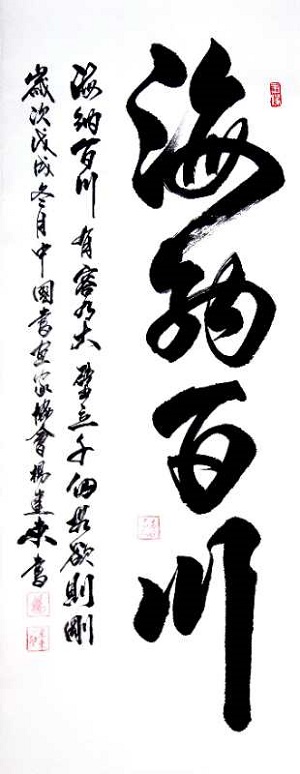 海納百川
海納百川 有容乃大 壁立千仞 無欲則剛
歲次戊戌冬月中國書畫家協會楊建東書